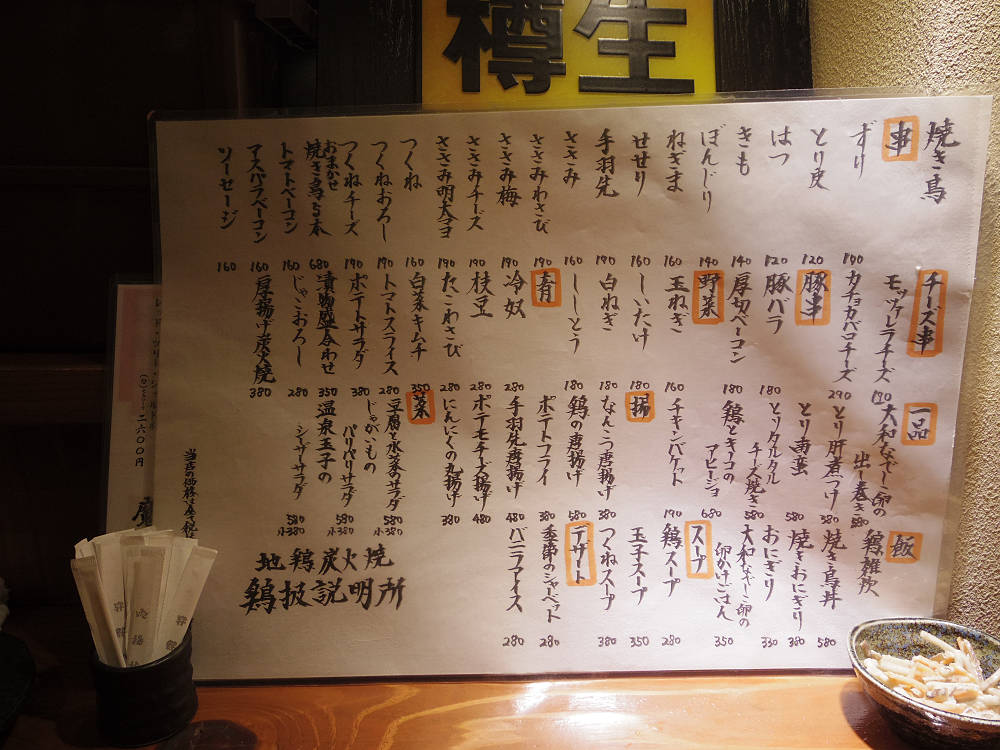 樽生
焼き鳥
串
ずり 190
とり皮 120
はつ 120
きも 140
ぼんじり 140
ねぎま 160
せせり 160
手羽先 190
ささみ 160
ささみわさび 190
ささみ梅 190
ささみチーズ 190
ささみ明太マヨ 190
つくね 160
つくねおろし 190
つくねチーズ 190
おまかせ
焼き鳥5本 680
トマトベーコン 160
アスパラベーコン 160
ソーセージ 160
チーズ串
モッツァレラチーズ 190
カチョカバロチーズ 290
豚串
豚バラ 180
厚切ベーコン 180
野菜
玉ねぎ 160
しいたけ 180
白ねぎ 180
ししとう 180
肴
冷奴 280
枝豆 280
たこわさび 280
白菜キムチ 350
トマトスライス 280
ポテトサラダ 380
漬物盛合わせ 350
じゃこおろし 280
厚揚げ炭火焼 380
一品
大和なでしこ卵の
出し巻き 580
とり肝煮つけ 380
とり南蛮 580
とりタルタル
チーズ焼き 580
鶏ときのこの
アヒージョ 680
チキンバケット 190
揚
なんこつ唐揚げ 380
鶏の唐揚げ 580
ポテトフライ 380
手羽先唐揚げ 480
ポテモチーズ揚げ 480
にんにくの丸揚げ 380
菜
豆腐と水菜のサラダ 580
小380
じゃがいもの
パリパリサラダ 580
小380
温泉玉子の
シーザーサラダ 580
小380
飯
鶏雑炊 580
焼き鳥丼 580
焼きおにぎり 380
おにぎり 330
大和なでしこ卵の
卵かけごはん 350
スープ
鶏スープ 280
玉子スープ 350
つくねスープ 380
デザート
季節のシャーベット 280
バニラアイス 280
地鶏炭火焼
鶏扱説明所
二六〇〇円